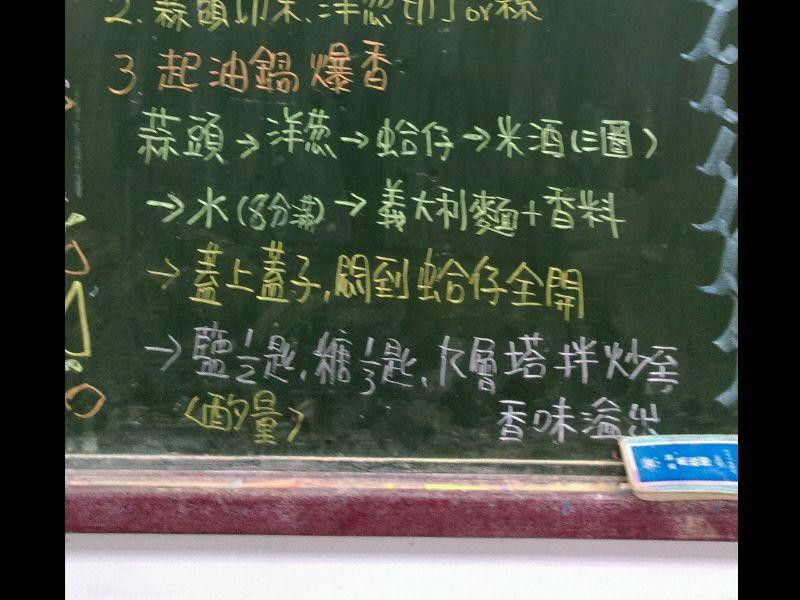 2. 蒜頭切末、洋葱切丁or絲
3. 起油鍋爆香
蒜頭→洋葱→蛤仔→米酒(三圈)
→水(8分滿)→義大利麵+香料
→蓋上蓋子,悶到蛤仔全開
→鹽1/2匙、糖1/3匙、九層塔拌炒至
(酌量) 香味溢出